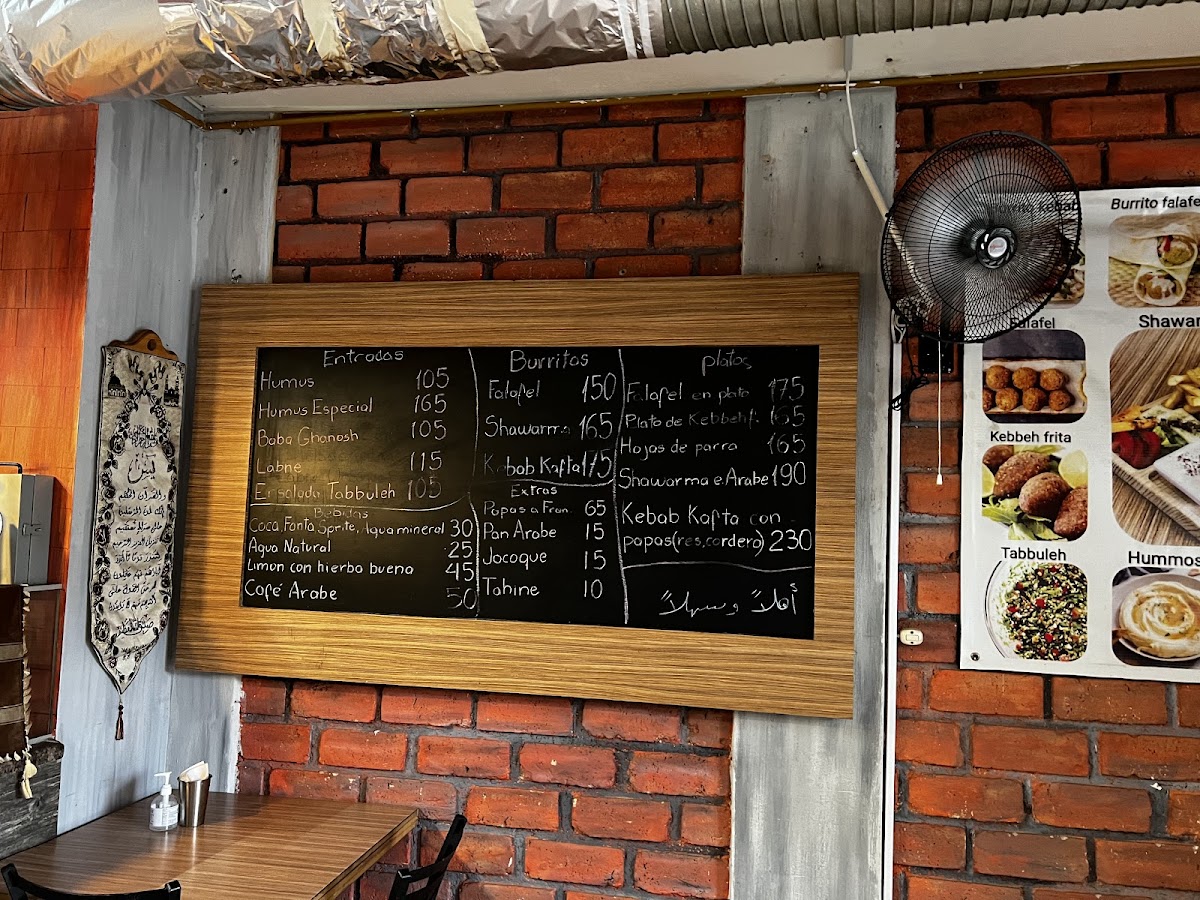 Entradas
Humus 105
Humus Especial 165
Baba Ghanosh 105
Labne 115
Ensalada Tabbuleh 105
Bebidas
Coca, Fanta Sprite, Agua mineral 30
Agua Natural 25
Limon con hierbo buena 45
Café Arabe 50
Burritos
Falafel 150
Shawarma 165
Kebab Kafta 175
Extras
Papas a Fran. 65
Pan Arabe 15
Jocoque 15
Tahine 10
Platos
Falafel en plato 175
Plato de Kebbeh f. 165
Hojas de parra 165
Shawarma e Arabe 190
Kebab Kafta con
papas (res, cordero) 230
أهلاً وسهلاً
يس
Burrito falafe
Falafel
Shawar
Kebbeh frita
Tabbuleh
Hummos